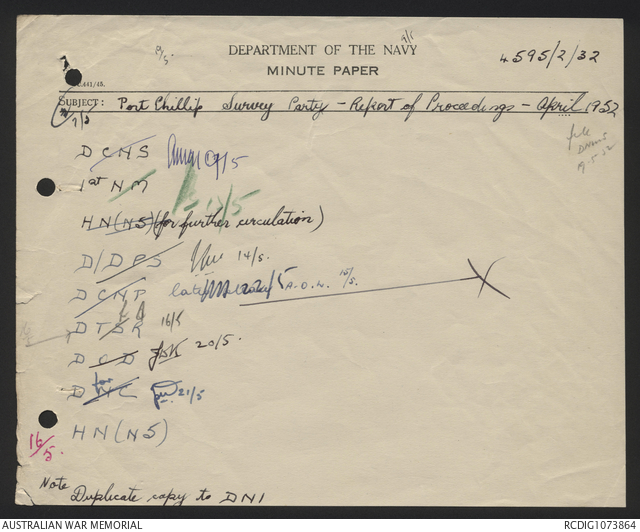 DEPARTMENT OF THE NAVY
MINUTE PAPER
4595/2/32
SUBJECT: Port Phillip Survey Party - Report of Proceedings - April 1952
7/5
DCNS 9/5
1st NM 13/5
HN(NS) (for further circulation)
D/DPS 14/5.
DCNP 22/5 A.O.W. 15/5.
DTSR 16/5
DCD 20/5.
for
DNC 21/5
HN(NS)
16/5.
file
19.5.52
Note
Duplicate copy to DNI
AUSTRALIAN WAR MEMORIAL
RCDIG1073864